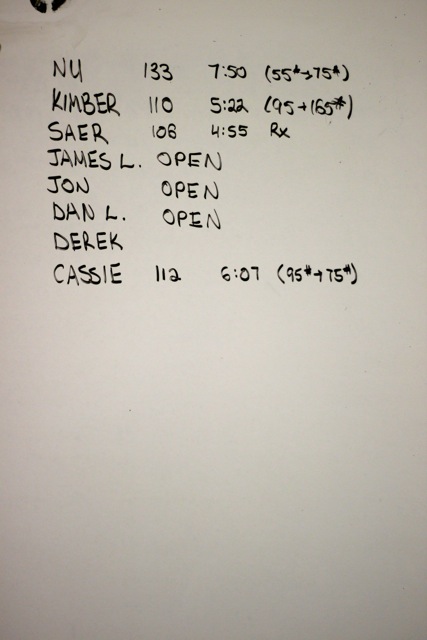 NU 133 7:50 (55#→75#)
KIMBER 110 5:22 (95→165#)
SAER 106 4:55 Rx
JAMES L. OPEN
JON OPEN
DAN L. OPEN
DEREK
CASSIE 112 6:07 (95#→75#)